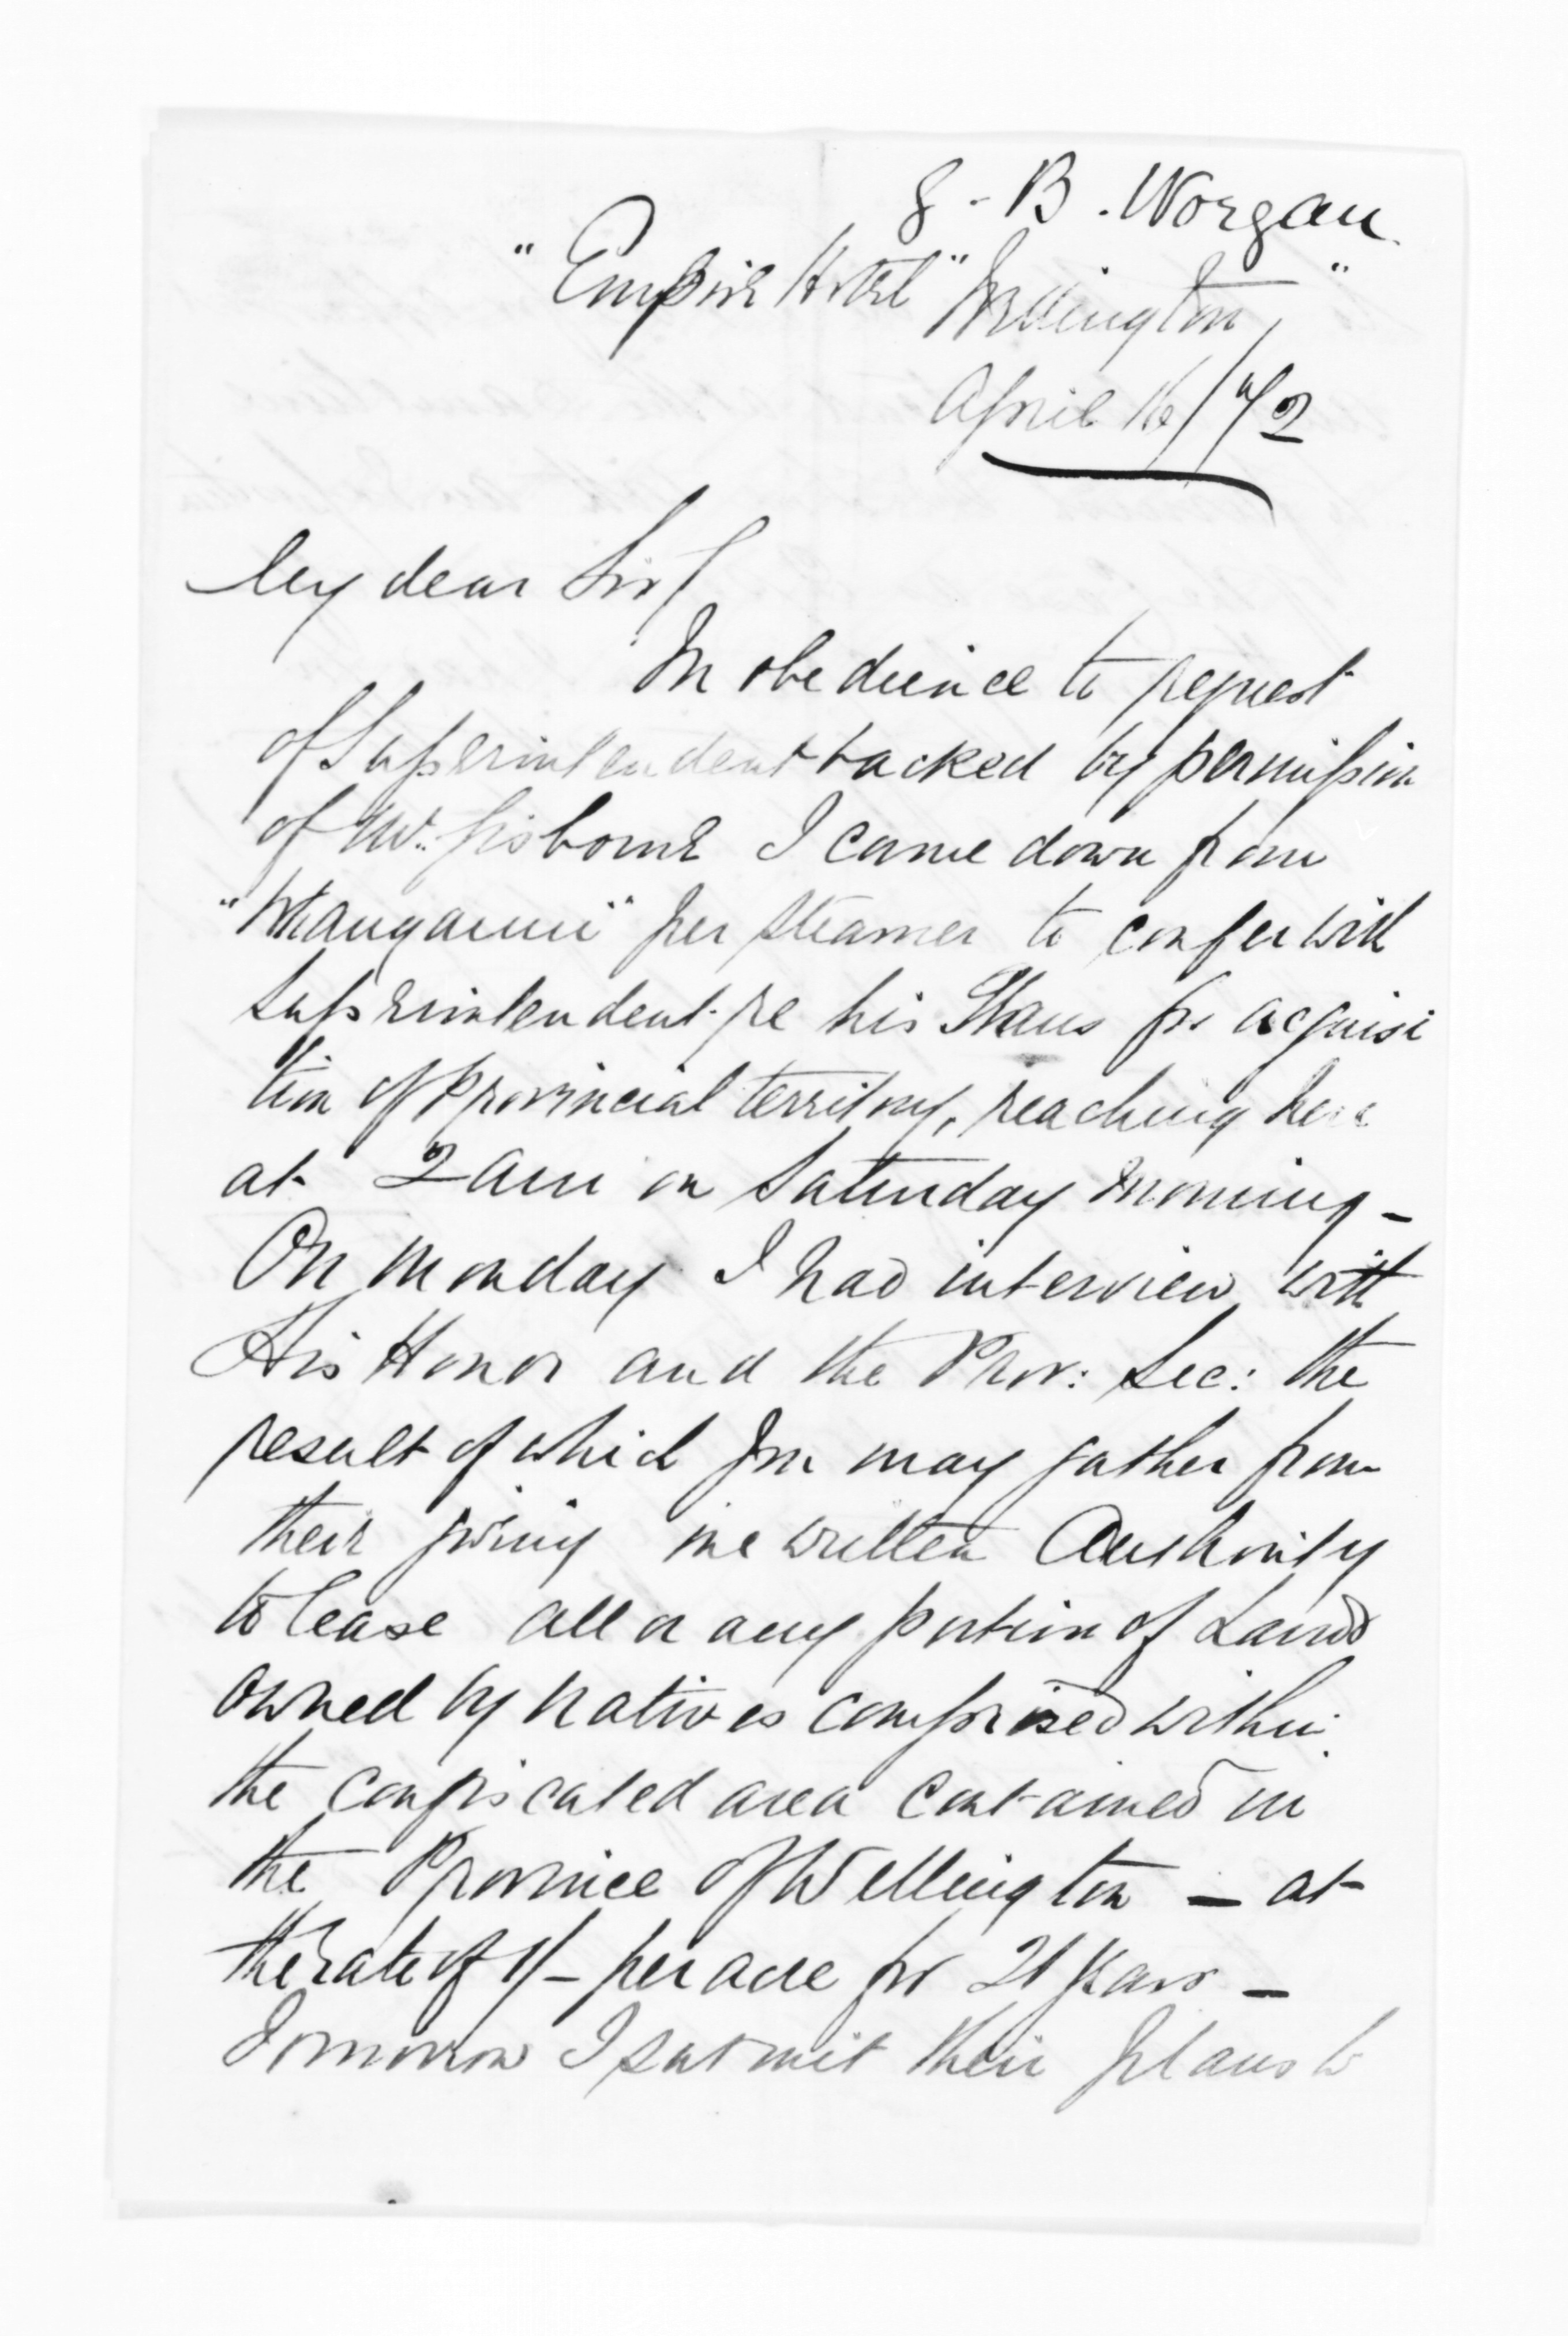 S. B. Worgan.
"Empire Hotel" Wellington,"
April 16/72
My dear Sir/
In obedience to request
of Superintendent backed by permission
of Mr. Gisborne I came down from
"Whanganui" per steamer to confer with
Superintendent re his Plans for acquisi
tion of Provincial territory, reaching here
at 2 am on Saturday morning –
On Monday I had interview with
His Honor and the Prov: Sec: the
result of which you may gather from
their giving me written Authority
to lease all or any portion of Lands
owned by natives comprised within
the confiscated area contained in
the Province of Wellington – at
the rate of 1/– per acre for 21 years –
Tomorrow I submit their plans to